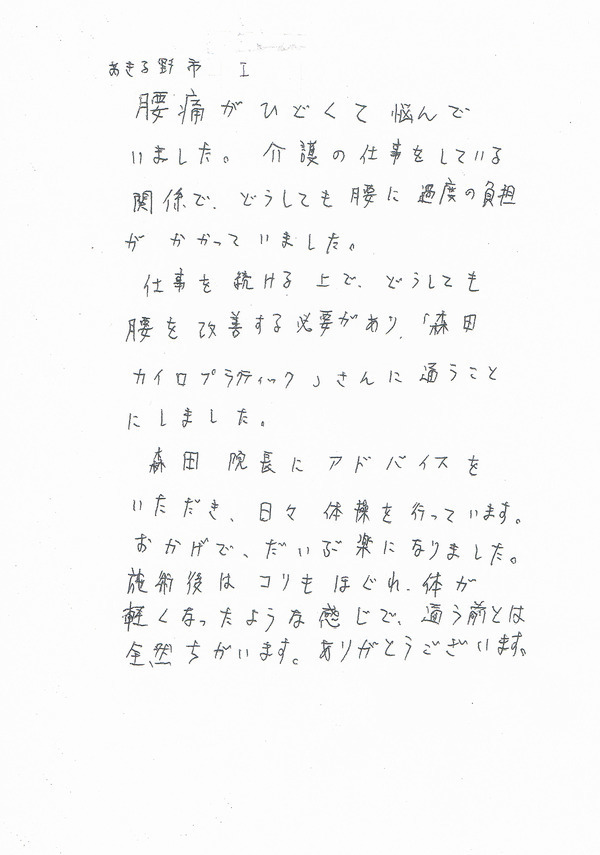 あきる野市 I
腰痛がひどくて悩んで
いました。介護の仕事をしている
関係で、どうしても腰に過度の負担
がかかっていました。
仕事を続ける上で、どうしても
腰を改善する必要があり、「森田
カイロプラティック」さんに通うこと
にしました。
森田院長にアドバイスを
いただき、日々体操を行っています。
おかげで、だいぶ楽になりました。
施術後はコリもほぐれ、体が
軽くなったような感じで、通う前とは
全然ちがいます。ありがとうございます。